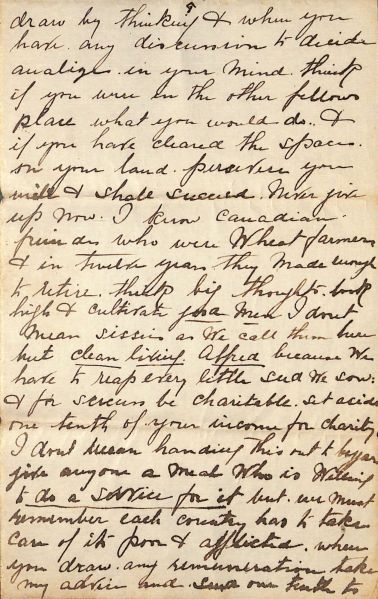 draw by thinking & when you
have any discussion to decide
analize in your mind. think
if you were in the other fellows
place what you would do. &
if you have cleared the space
on your land. persevere you
will & shall succeed. Never give
up now. I know Canadian
friends who were Wheat farmers
& in twelve years they made enough
to retire. think big thoughts. look
high & cultivate good men I dont
mean sissies as we call them here
but clean living Alfred because we
have to reap every little seed we sow.
& for be charitable. set aside
one tenth of your income for charity
I dont mean handing this out to
give anyone a meal who is willing
to do a service for it but we must
remember each country has to take
care of its poor & afflicted. when
you draw any remuneration take
my advice and send one tenth to